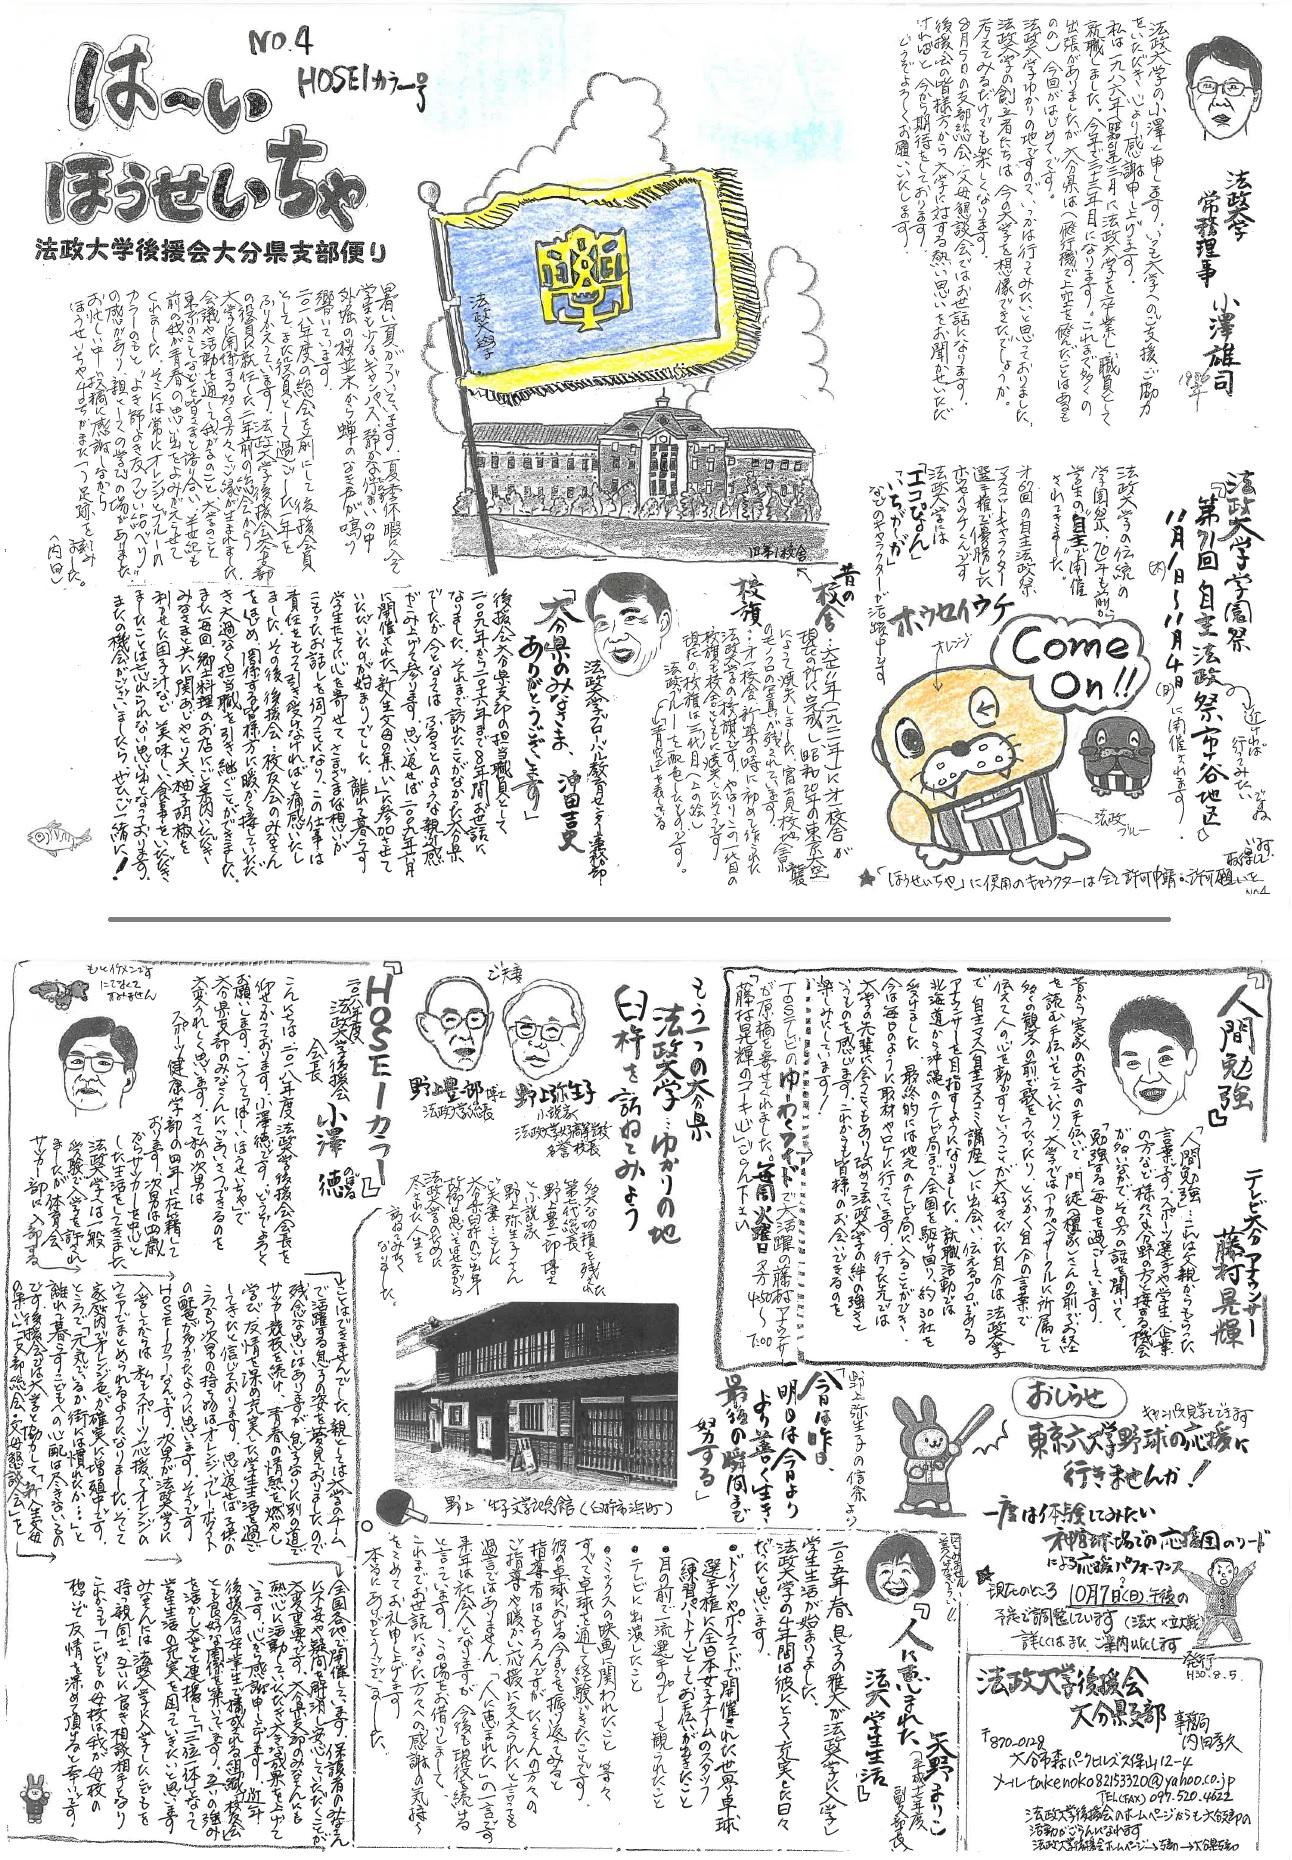 NO.4
HOSEIカラー号
は〜い
ほうせいちゃ
法政大学後援会大分県支部便り
法政大学
常務理事 小澤雄司
法政大学の小澤と申します。いつも大学へのご支援、ご協力
をいただき、心より感謝申し上げます。
法政大学ゆかりの地ですので、いつかは行ってみたいと思っておりました。
法政大学の創立者たちは、今の大学を想像できたでしょうか。
考えてみるだけでも楽しくなります。
8月5日の支部総会、父母懇談会ではお世話になります。
後援会の皆様方から大学に対する熱い思いをお聞かせいただ
ければと、今から期待をしております。
どうぞよろしくお願いいたします。
法政大學
旧第1校舎
法政大学学園祭
『第71回自主法政祭市谷地区』
11月1日〜11月4日
(木)
(日)に開催されます。
近ければ
行ってみたい
ですね
法政大学の伝統の
学園祭、70年も前から
学生の"自主"で開催
されてきました。
マスコットキャラクター
選手権で優勝した
ホウセイウケくんです
法政大学には
「エコぴょん」
「いちがーが」
などのキャラクターが活躍中です
ホウセイウケ
オレンジ
Come
On!!
法政
ブルー
★「ほうせいちゃ」に使用のキャラクターは全て許可申請・許可願いを
取得して
います。
NO4
昔の
校舎
校旗
「大分県のみなさま、
ありがとうございます」
法政大学グローバル教育センター事務部
沖田吉史
後援会大分県支部の担当職員として
二〇〇九年から二〇一六年まで8年間お世話に
なりました。それまで訪れたことがなかった大分県
でしたが、今となっては、ふるさとのような親近感
がこみ上げて参ります。思い返せば、二〇〇九年六月
に開催された「新入生父母の集い」に参加させて
いただいたのが始まりでした。離れて暮らす
学生たちに心を寄せて、さまざまな想いが
こもったお話しを伺うことになり、この仕事は
責任をもって引き受けなければと痛感いたし
ました。その後、後援会・校友会のみなさん
をはじめ、関係する皆様方に暖かく接していただ
き、大過なく担当職を引き継ぐことができました。
また、毎回、郷土料理のお店にご案内いただき、
みなさまと共に関あじやとり天、柚子胡椒を
利かせた団子汁など、美味しい食事をいただき
ましたことは忘れられない思い出となっております。
またの機会がございましたら、ぜひご一緒に!
暑い夏がつづいています。夏季休暇に入って
学生も少ないキャンパス、静かな佇いの中
外堀の桜並木から蝉のなき声が鳴り
響いています。
二〇一八年度の総会を前にして後援会員
そしてまた役員として過ごした一年を
ふりかえっています。法政大学後援会大分支部
の役員に就任した二年前の総会から
大学に関係する多くの方々とご縁が生まれました。
会議や活動を通して我が子のこと、大学のこと
東京のことなどを皆さまと語り合い、半世紀も
前の我が青春の思い出をよみがえらせて
くれました。そこには常にオレンジとブルーの
カラーのもと、"よき師よき友つどい結べり"
の感があり、親としての学びの場がありました。
お忙しい中、投稿に感謝しながら
ほうせいちゃ4号がまた一つ足跡を刻み
ました。
(内田)
『人間勉強』
テレビ大分アナウンサー
藤村晃輝
「人間勉強」…これは父親からもらった
言葉です。スポーツ選手や学生、企業
の方など様々な分野の方と接する機会
が多いなかで、その方の話を聞いて、
「勉強する」毎日を過ごしています。
昔から実家のお寺の手伝いで、門徒(檀家)さんの前でお経
を読む手伝いをしていたり、大学ではアカペラサークルに所属して
多くの観客の前で歌をうたったり、とにかく自分の言葉で
伝えて人の心を動かすということが大好きだった自分は、法政大学
で「自主マスコミ講座」に出会い、伝えるプロである
アナウンサーを目指すようになりました。就職活動では
北海道から沖縄のテレビ局まで全国を駆け回り、約30社を
受けました。最終的には地元のテレビ局に入ることができ、
今は毎日のように取材やロケに行っています。行った先では
大学の先輩に会うこともあり、改めて法政大学の絆の強さと
いうものを感じます。これからも皆様とお会いできるのを
楽しみにしています!
TOSテレビの『ゆ〜わくワイド』で大活躍の藤村アナウンサー
が原稿を寄せてくれました。毎週火曜日夕方4:50〜7:00
「藤村晃輝のコーキ心」ごらん下さい
もう一つの大分県
法政大学…ゆかりの地
臼杵を訪ねてみよう
ご夫妻
野上豊一郎博士
法政大学総長
野上弥生子
小説家
法政大学女子高等学校
名誉校長
多大な功績を残された
第七代総長
野上豊一郎博士
と小説家
野上弥生子さん
ご夫妻…ともに
大分県臼杵のご出身
故郷に思いを寄せながら
法政大学のために
尽された人生を
訪ねてみたく
なりました。
野上弥生子文学記念館(臼杵市浜町)
「今日は昨日、
明日は今日より
より善く生き
最後の瞬間まで
努力する」
野上弥生子の信条より
『HOSEIカラー』
二〇一八年度
法政大学後援会
会長 小澤 徳
のぼる
もっとイケメンです
にてなくて
すみません
こんにちは。二〇一八年度法政大学後援会会長を
仰せつかっております、小澤徳です。どうぞよろしく
お願いします。こうして「は〜いほうせいちゃ」で
大分県支部のみなさんにごあいさつできるのを
大変うれしく思います。さて、私の次男は
スポーツ健康学部の四年に在籍して
おります。次男は四歳
からサッカーを中心と
した生活をしてきました。
法政大学へは一般
受験で入学を許され
ましたが、体育会
サッカー部に入部する
ことはできませんでした。親としては大学のチーム
で活躍する息子の姿を夢見ておりましたので
残念な思いはありますが、息子なりに別の道で
サッカー競技を続け、青春の情熱を燃やし
学び、友情を深め充実した学生生活を過ご
してきたと信じております。思い返せば、子供の
ころから次男の持ち物は、オレンジ、ブルー、ホワイト
の配色が多かったように思います。そうです
HOSEIカラーなんです。次男が法政大学に
入学してからは、私もスポーツ応援でオレンジの
ウエアでまとめられるようになりました。そして
家庭内でオレンジ色が確実に増殖中です。
ところで「元気でいるか、街には慣れたか…」と
離れて暮らす子どもへの心配は尽きないもの
です。後援会では大学と協力して、「新入生父母
の集い」「支部総会・父母懇談会」を
全国各地で開催しています。保護者のみなさん
に不安や疑問を解消し、安心していただくことが
大変重要です。大分県支部のみなさんにも
熱心に活動していただき、大きな成果を上げて
います。心から感謝申し上げます。近年
後援会は卒業生で構成される組織「校友会」
とも良好な関係を築いています。互いの強み
を活かし大学と連携して「三位一体」となって
学生生活の充実を図っていきたいと思います。
みなさんには、法政大学に入学した子どもを
持つ親同士、互いに良き相談相手となり
これからも「こどもの母校は我が母校の
想いで友情を深めて頂けると幸いです。
『人に恵まれた
法政大学生生活』
矢野まりこ
(平成二十七年度
副支部長)
二〇一五年春、息子の雅大が法政大学に入学し
学生生活が始まりました。
法政大学の4年間は彼にとって充実した日々
だったと思います。
・ドイツやポーランドで開催された世界卓球
選手権に全日本女子チームのスタッフ
(練習パートナー)としてお手伝いができたこと
・目の前で一流選手のプレーを観られたこと
・テレビに出演したこと
・ミックスの映画に関われたこと 等々
すべて卓球を通して経験できたことです。
彼の卓球における今までを振り返ってみると
指導者はもちろんですが、たくさんの方々の
ご指導や暖かい応援に支えられたと言っても
過言ではありません。「人に恵まれた」の一言です
来年は社会人となりますが、今後も現役を続ける
と言っています。この場をお借りしまして、
これまでお世話になった方々への感謝の気持ち
をこめてお礼申し上げます。
本当にありがとうございました。
おしらせ
キャンパス見学もできます
東京六大学野球の応援に
行きませんか!
一度は体験してみたい
神宮球場での応援団のリード
による応援パフォーマンス
★現在のところ10月7日(日)午後の
予定で調整しています(法大×立大戦)
詳しくはまたご案内いたします
発行
H30.8.5.
法政大学後援会
大分県支部 事務局
内田孝久
〒870-0128
大分市森パークヒルズ久保山12-4
メール takenoko82153320@yahoo.co.jp
TEL(FAX) 097.520.4622
法政大学後援会のホームページからも大分支部の
活動がごらんになれます
法政大学後援会ホームページ→支部→大分県支部